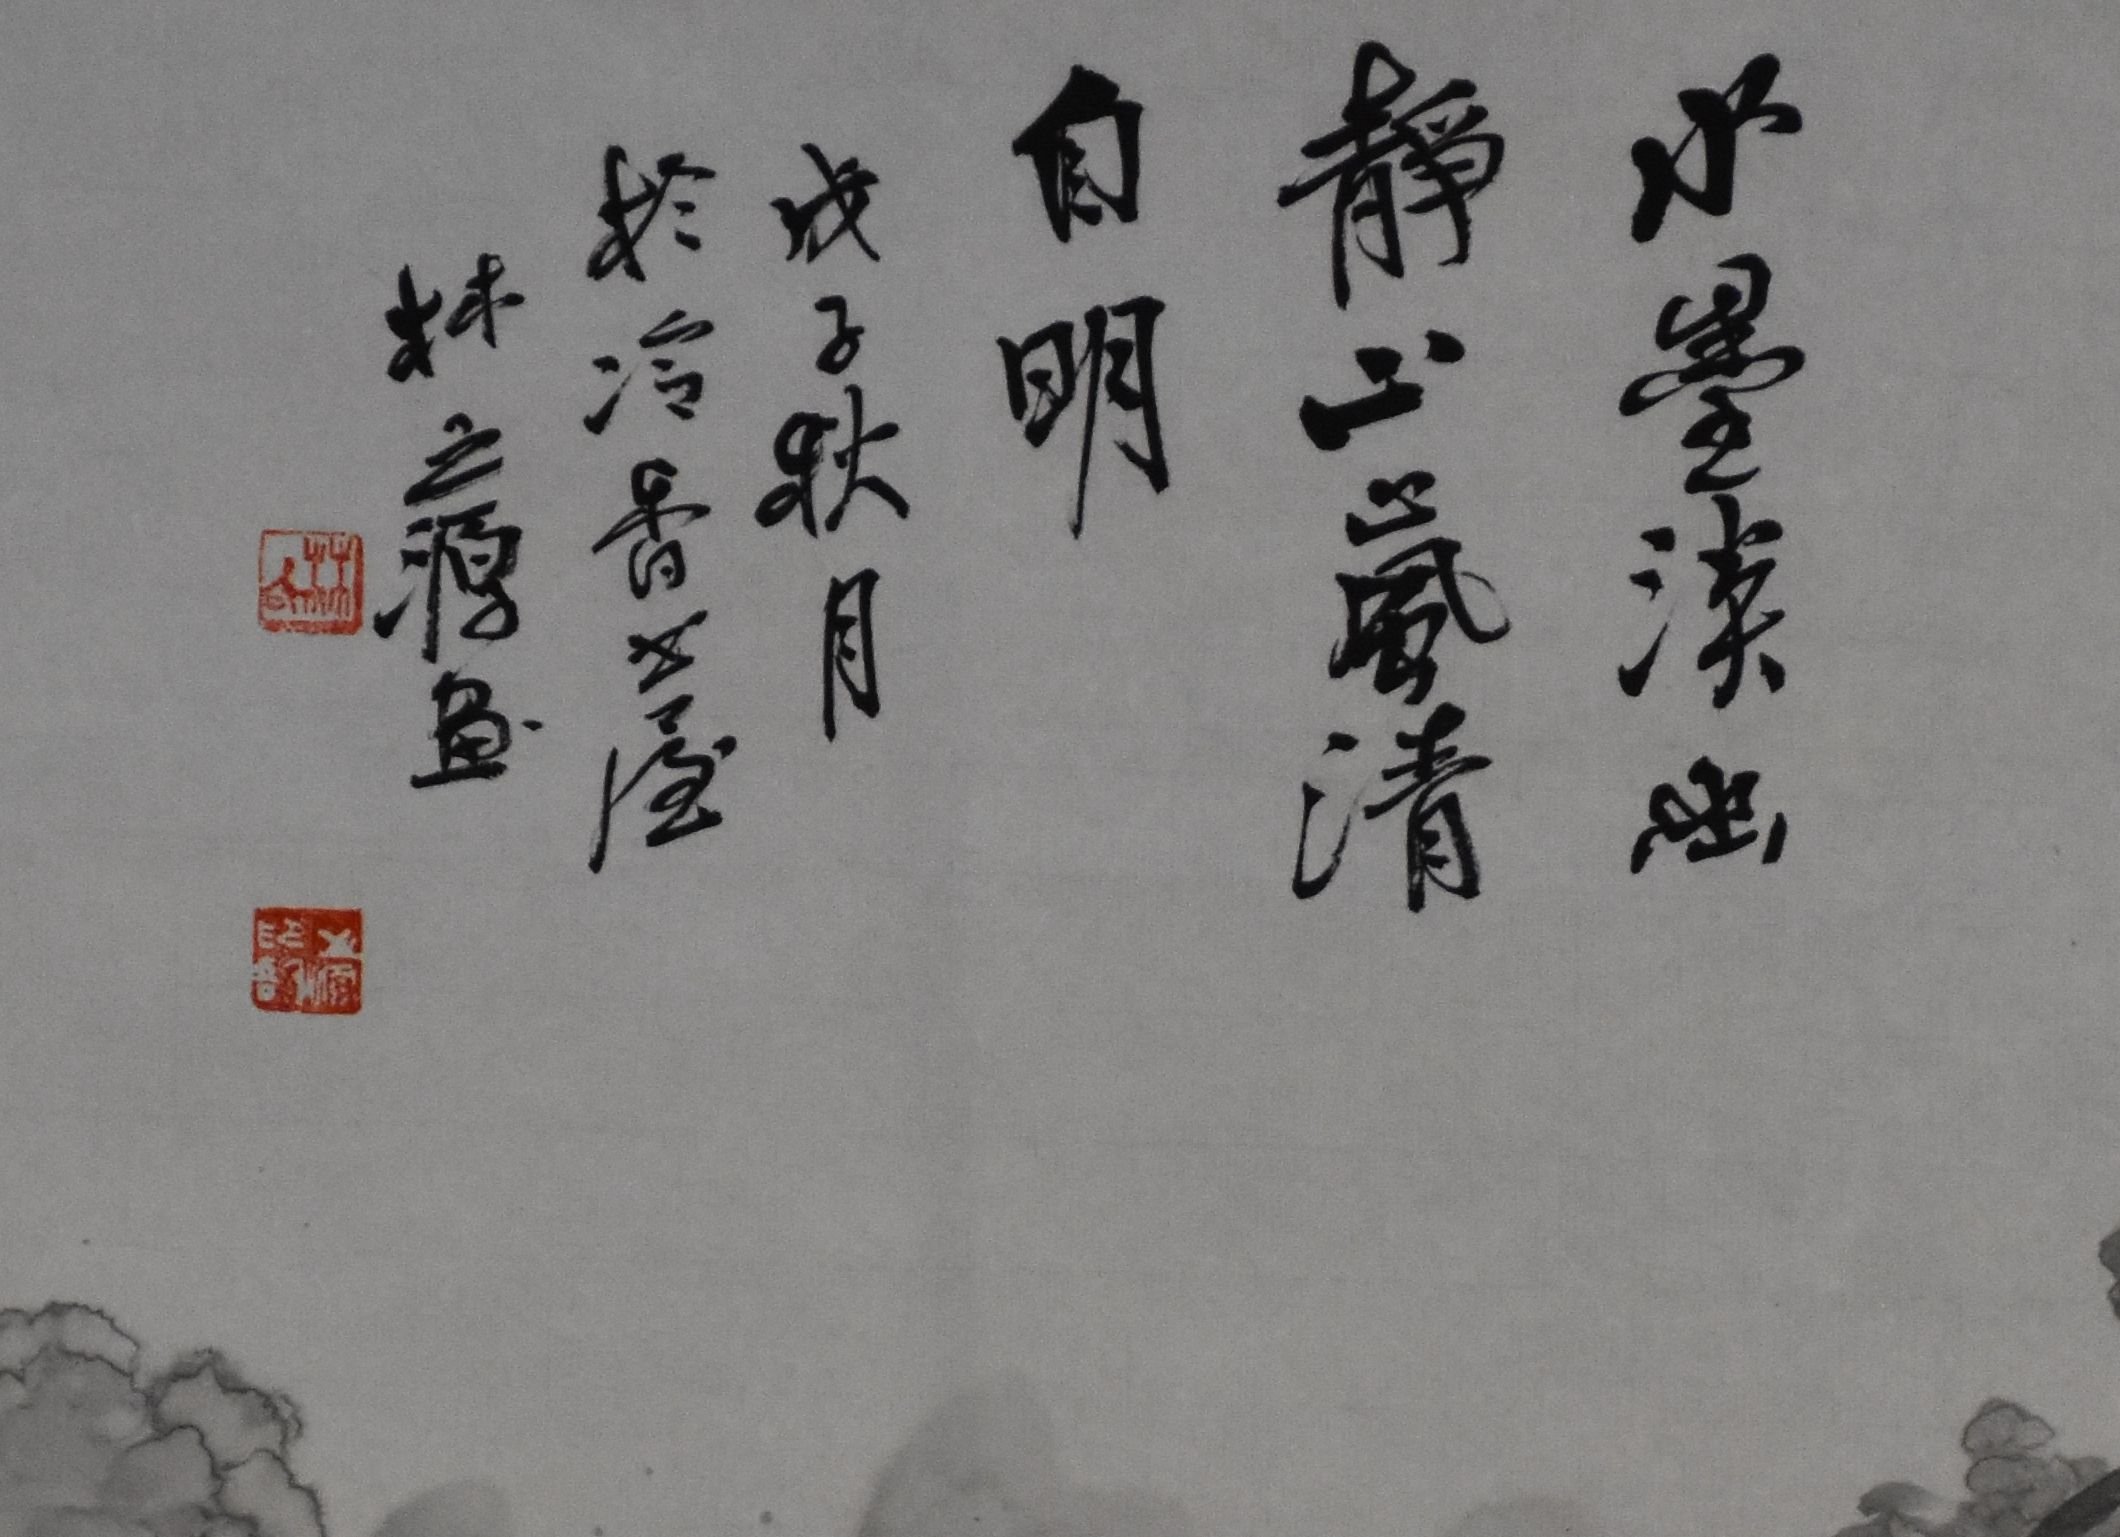 水墨淡幽
靜山嵐清
自明
戊子秋月
於冷香草屋
林立源畫
林